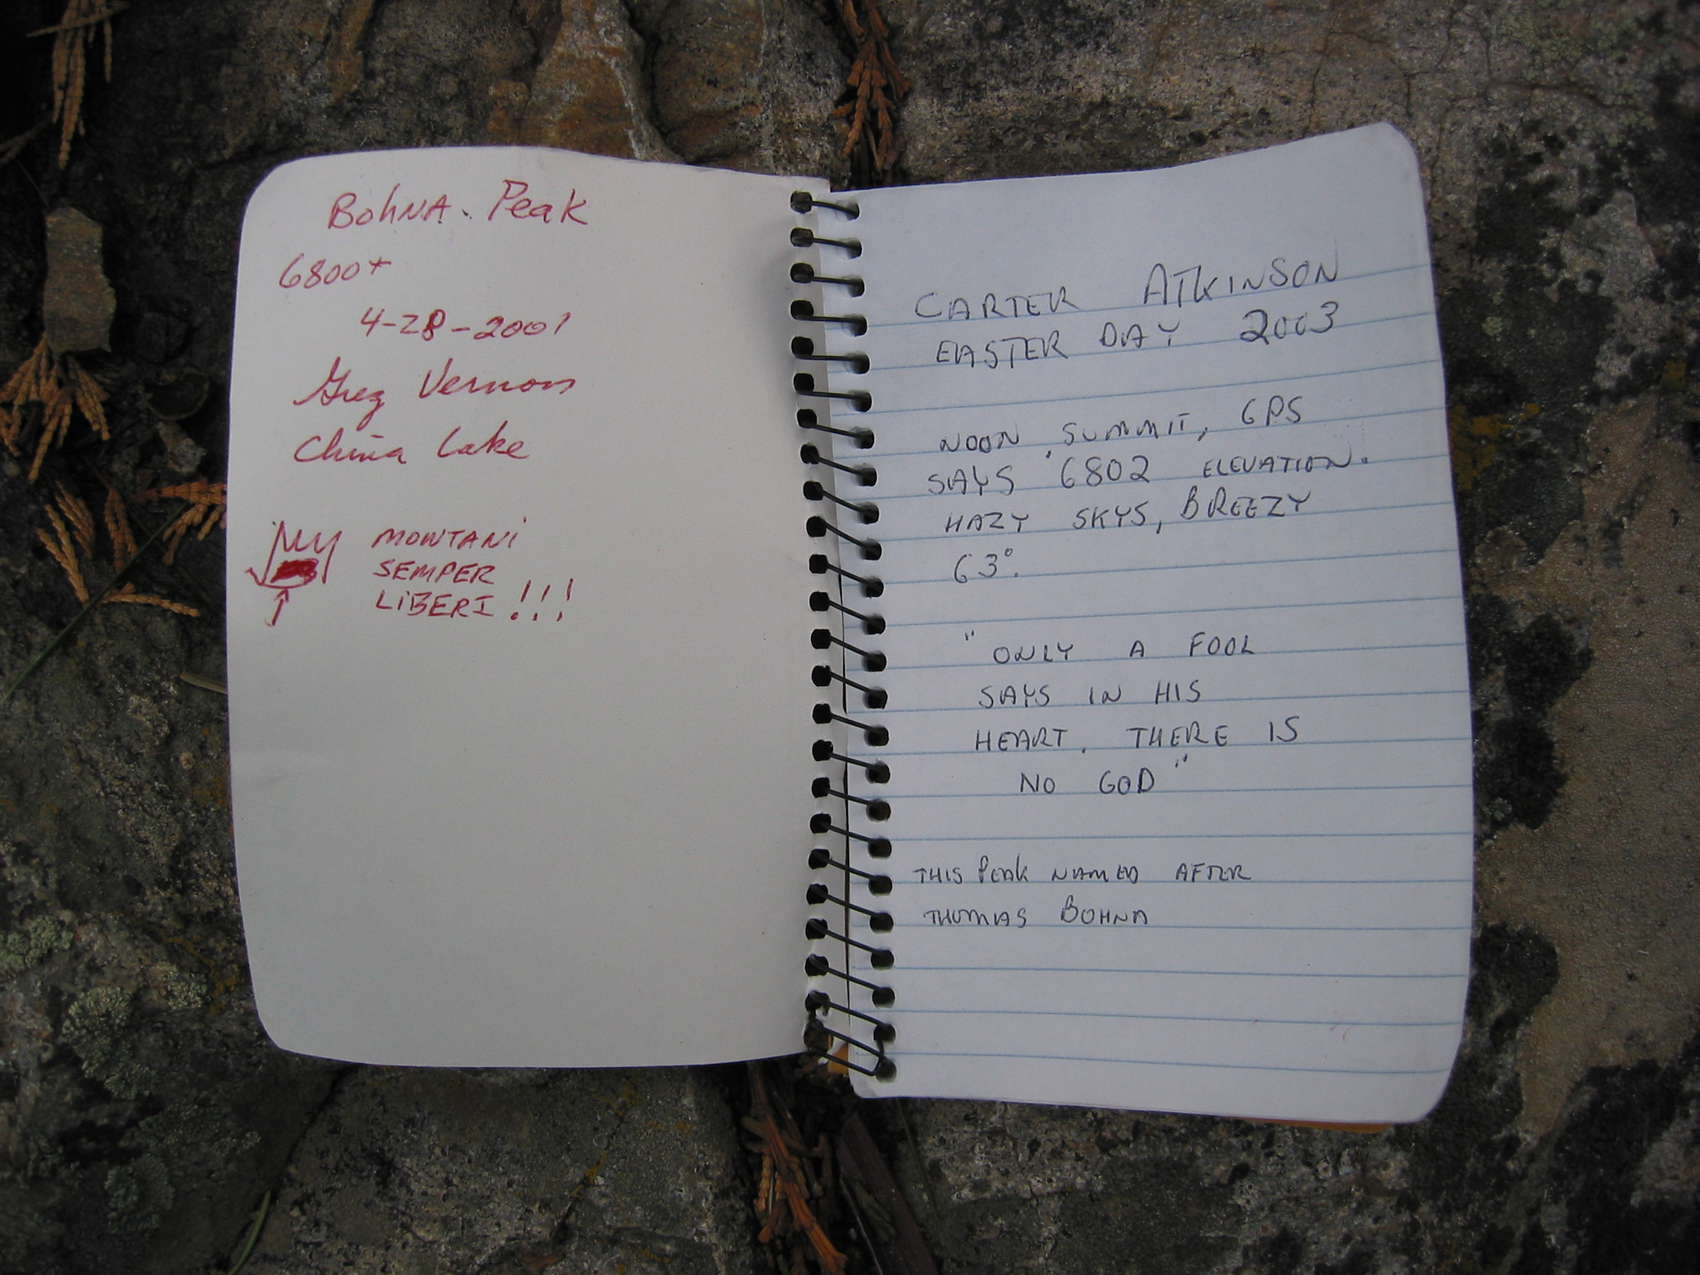 Bohna. Peak
6800+
4-28-2001
Greg Vernon
China Lake
MONTANI
SEMPER
LIBERI!!!
CARTER ATKINSON
EASTER DAY 2003
NOON SUMMIT, GPS
SAYS 6802 ELEVATION.
HAZY SKYS, BREEZY
63°.
"ONLY A FOOL
SAYS IN HIS
HEART, THERE IS
NO GOD"
THIS PEAK NAMED AFTER
THOMAS BOHNA